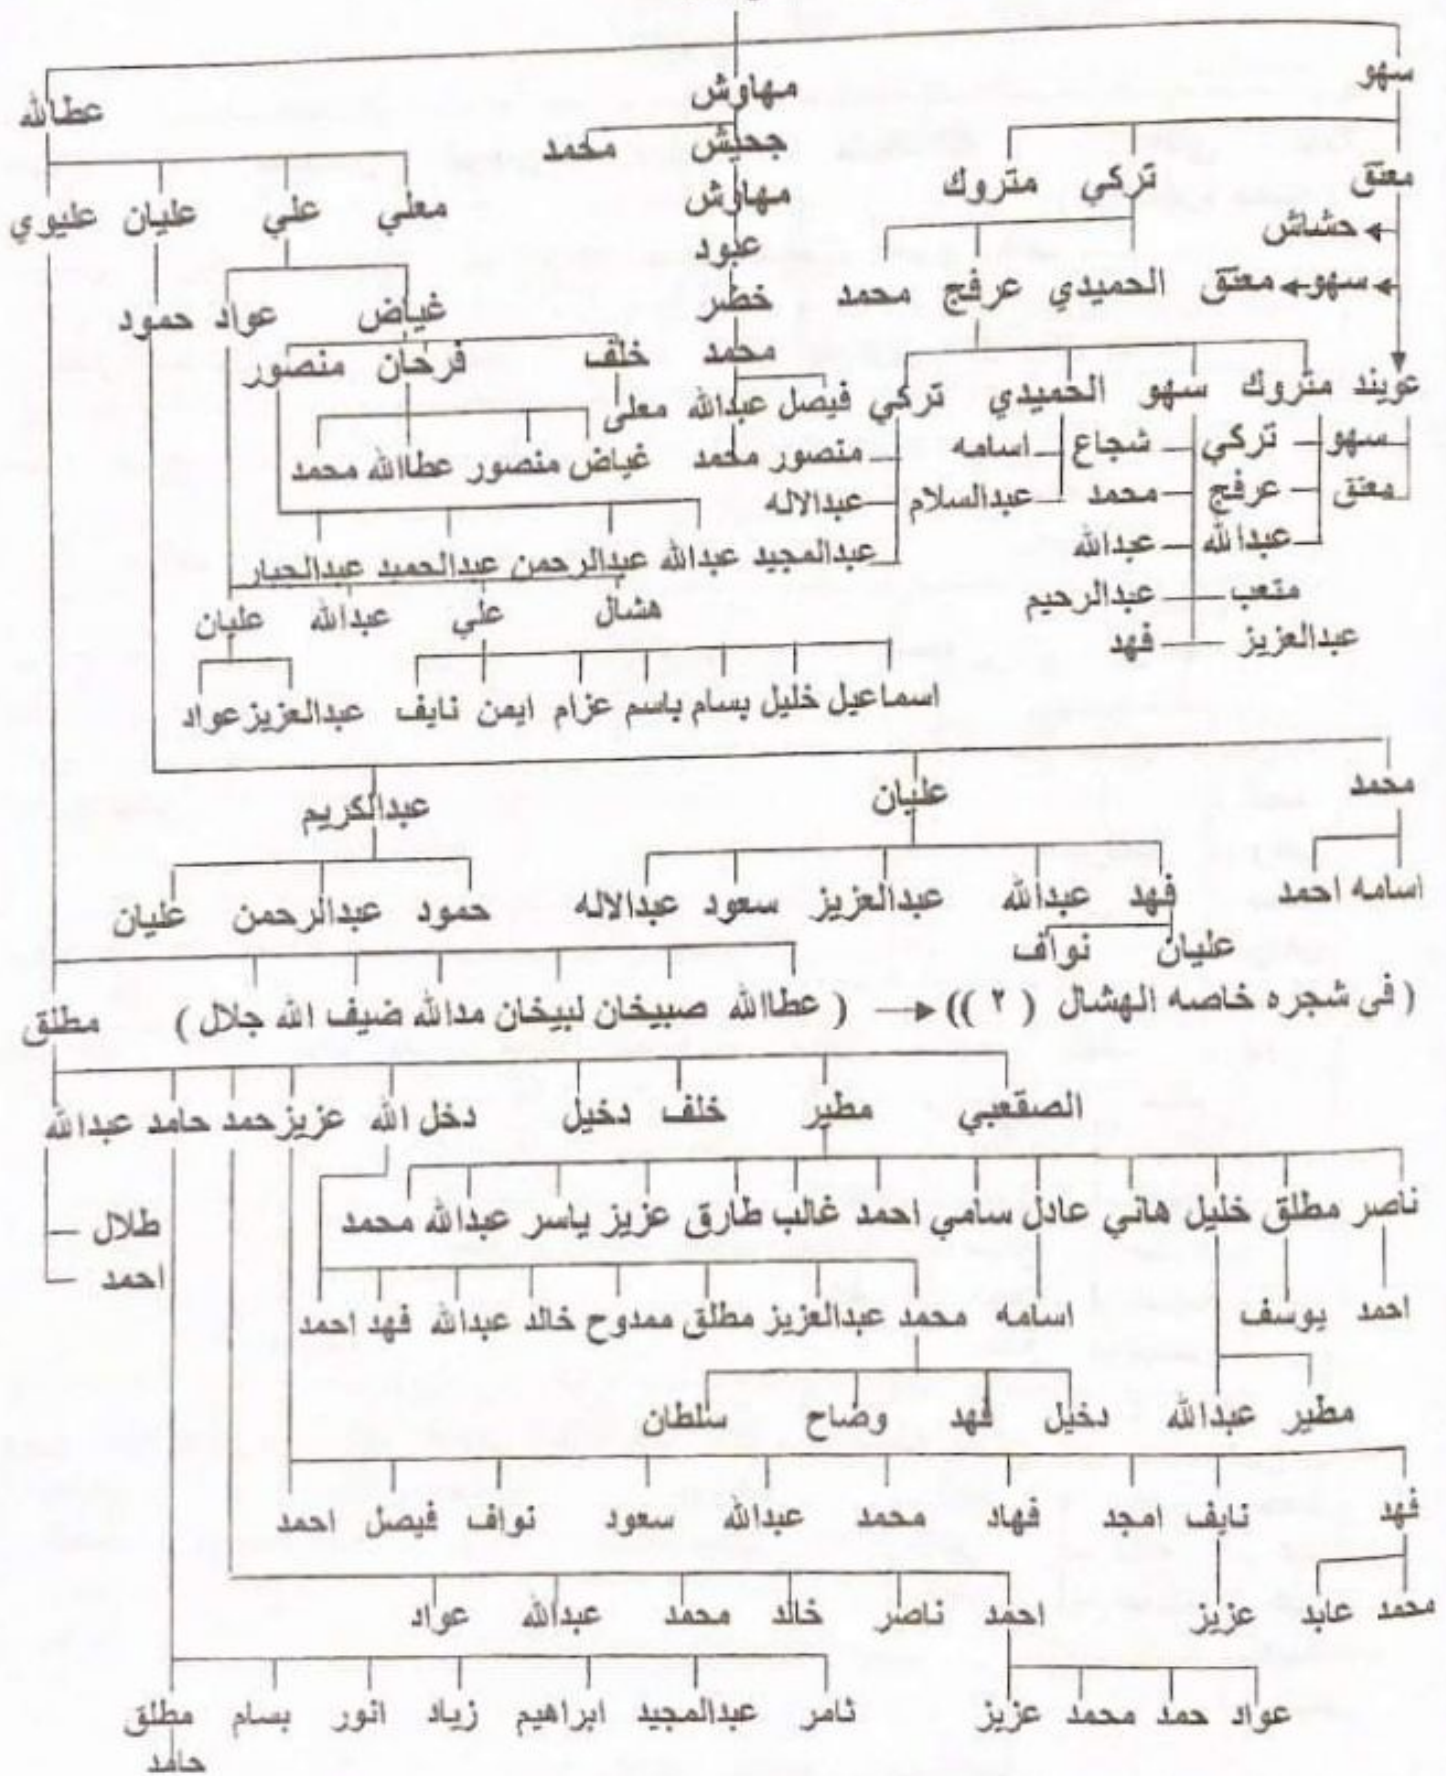 سهو مهاوش عطالله
محمد جحيش
معتق تركي متروك مهاوش معلي علي عليان عليوي
حشاش عبود
سهو معتق الحميدي عرفج محمد خضر غياض عواد حمود
محمد خلف فرحان منصور
عويند متروك سهو الحميدي تركي فيصل عبدالله معلى
سهو تركي شجاع اسامه منصور محمد غياض منصور عطاالله محمد
معتق عرفج محمد عبدالسلام عبدالاله
عبدالله عبدالله عبدالمجيد عبدالله عبدالرحمن عبدالحميد عبدالجبار
متعب عبدالرحيم هشال علي عبدالله عليان
عبدالعزيز فهد
اسماعيل خليل بسام باسم عزام ايمن نايف عبدالعزيز عواد
محمد عليان عبدالكريم
اسامه احمد فهد عبدالله عبدالعزيز سعود عبدالاله حمود عبدالرحمن عليان
عليان نواف
( في شجره خاصه الهشال ( ٢ )) ( عطاالله صبيخان لبيخان مدالله ضيف الله جلال ) مطلق
الصقعبي مطير خلف دخيل دخل الله عزيز حمد حامد عبدالله
ناصر مطلق خليل هاني عادل سامي احمد غالب طارق عزيز ياسر عبدالله محمد طلال
احمد
احمد يوسف اسامه محمد عبدالعزيز مطلق ممدوح خالد عبدالله فهد احمد
مطير عبدالله دخيل فهد وضاح سلطان
فهد نايف امجد فهاد محمد عبدالله سعود نواف فيصل احمد
محمد عابد عزيز احمد ناصر خالد محمد عبدالله عواد
عواد حمد محمد عزيز ثامر عبدالمجيد ابراهيم زياد انور بسام مطلق
حامد